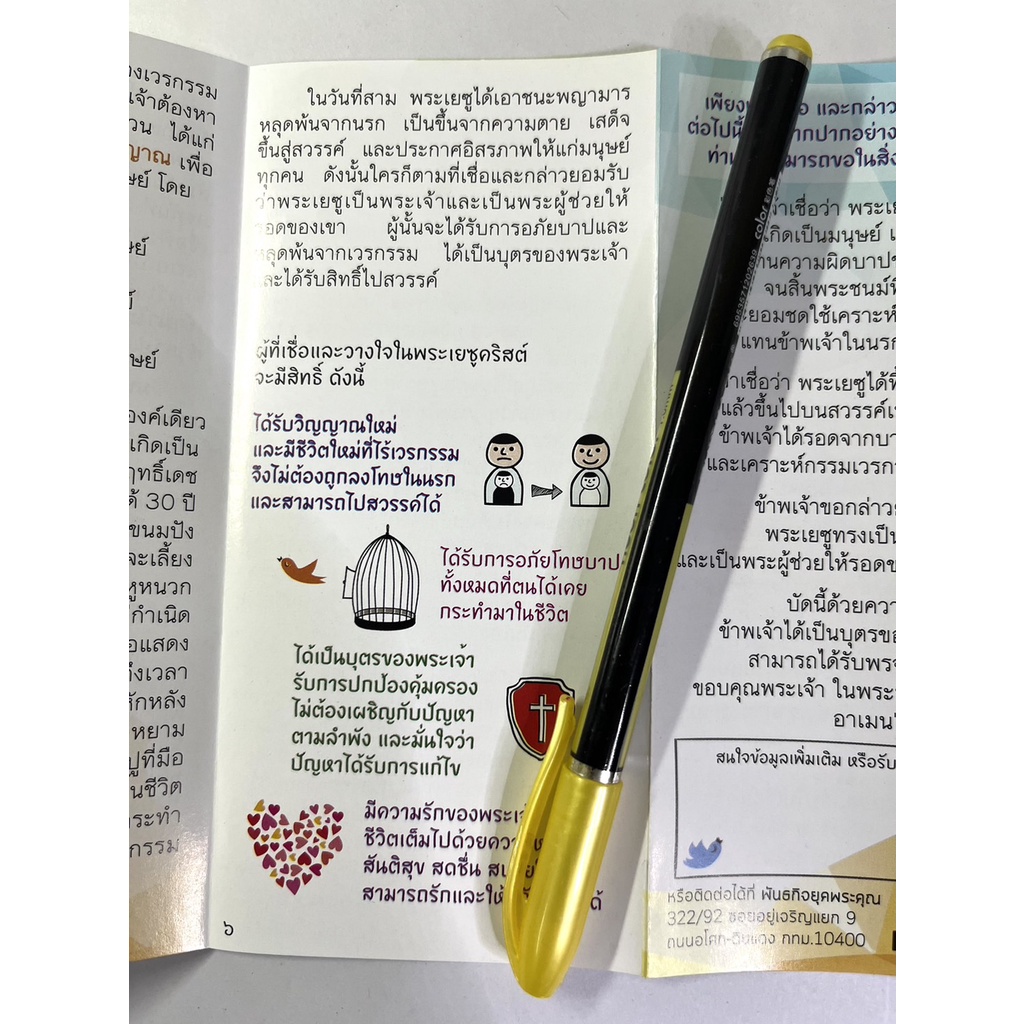 องเวรกรรม
นเจ้าต้องหา
วน ได้แก่
ญาณ เพื่อ
ษย์ โดย
ษย์
ษย์
องค์เดียว
เกิดเป็น
ฤทธิ์เดช
ด้ 30 ปี
ขนมปัง
จะเลี้ยง
หูหนวก
กำเนิด
อแสดง
ถึงเวลา
หักหลัง
หยาม
ปูที่มือ
นชีวิต
ระทำ
กรรม
ในวันที่สาม พระเยซูได้เอาชนะพญามาร
หลุดพ้นจากนรก เป็นขึ้นจากความตาย เสด็จ
ขึ้นสู่สวรรค์ และประกาศอิสรภาพให้แก่มนุษย์
ทุกคน ดังนั้นใครก็ตามที่เชื่อและกล่าวยอมรับ
ว่าพระเยซูเป็นพระเจ้าและเป็นพระผู้ช่วยให้
รอดของเขา ผู้นั้นจะได้รับการอภัยบาปและ
หลุดพ้นจากเวรกรรม ได้เป็นบุตรของพระเจ้า
และได้รับสิทธิ์ไปสวรรค์
ผู้ที่เชื่อและวางใจในพระเยซูคริสต์
จะมีสิทธิ์ ดังนี้
ได้รับวิญญาณใหม่
และมีชีวิตใหม่ที่ไร้เวรกรรม
จึงไม่ต้องถูกลงโทษในนรก
และสามารถไปสวรรค์ได้
ได้รับการอภัยโทษบาป
ทั้งหมดที่ตนได้เคย
กระทำมาในชีวิต
ได้เป็นบุตรของพระเจ้า
รับการปกป้องคุ้มครอง
ไม่ต้องเผชิญกับปัญหา
ตามลำพัง และมั่นใจว่า
ปัญหาได้รับการแก้ไข
มีความรักของพระเจ้
ชีวิตเต็มไปด้วยควา
สันติสุข สดชื่น
สามารถรักและให้ ได้
๖
เพียง และกล่าว
ต่อไปนี้ ากปากอย่าง
ท่าน มารถขอในสิ่ง
าเชื่อว่า พระเย
เกิดเป็นมนุษย์ เ
านความผิดบาปข
จนสิ้นพระชนม์ที่
ยอมชดใช้เคราะห์
แทนข้าพเจ้าในนรก
าเชื่อว่า พระเยซูได้ที่
แล้วขึ้นไปบนสวรรค์เ
ข้าพเจ้าได้รอดจากบา
และเคราะห์กรรมเวรก
ข้าพเจ้าขอกล่าว
พระเยซูทรงเป็น
และเป็นพระผู้ช่วยให้รอดข
บัดนี้ด้วยควา
ข้าพเจ้าได้เป็นบุตรขอ
สามารถได้รับพร
ขอบคุณพระเจ้า ในพระ
อาเมน
สนใจข้อมูลเพิ่มเติม หรือรับ
หรือติดต่อได้ที่ พันธกิจยุคพระคุณ
322/92 ซอยอยู่เจริญแยก 9
ถนนอโศก-ดินแดง กทม.10400
color
6953571202639